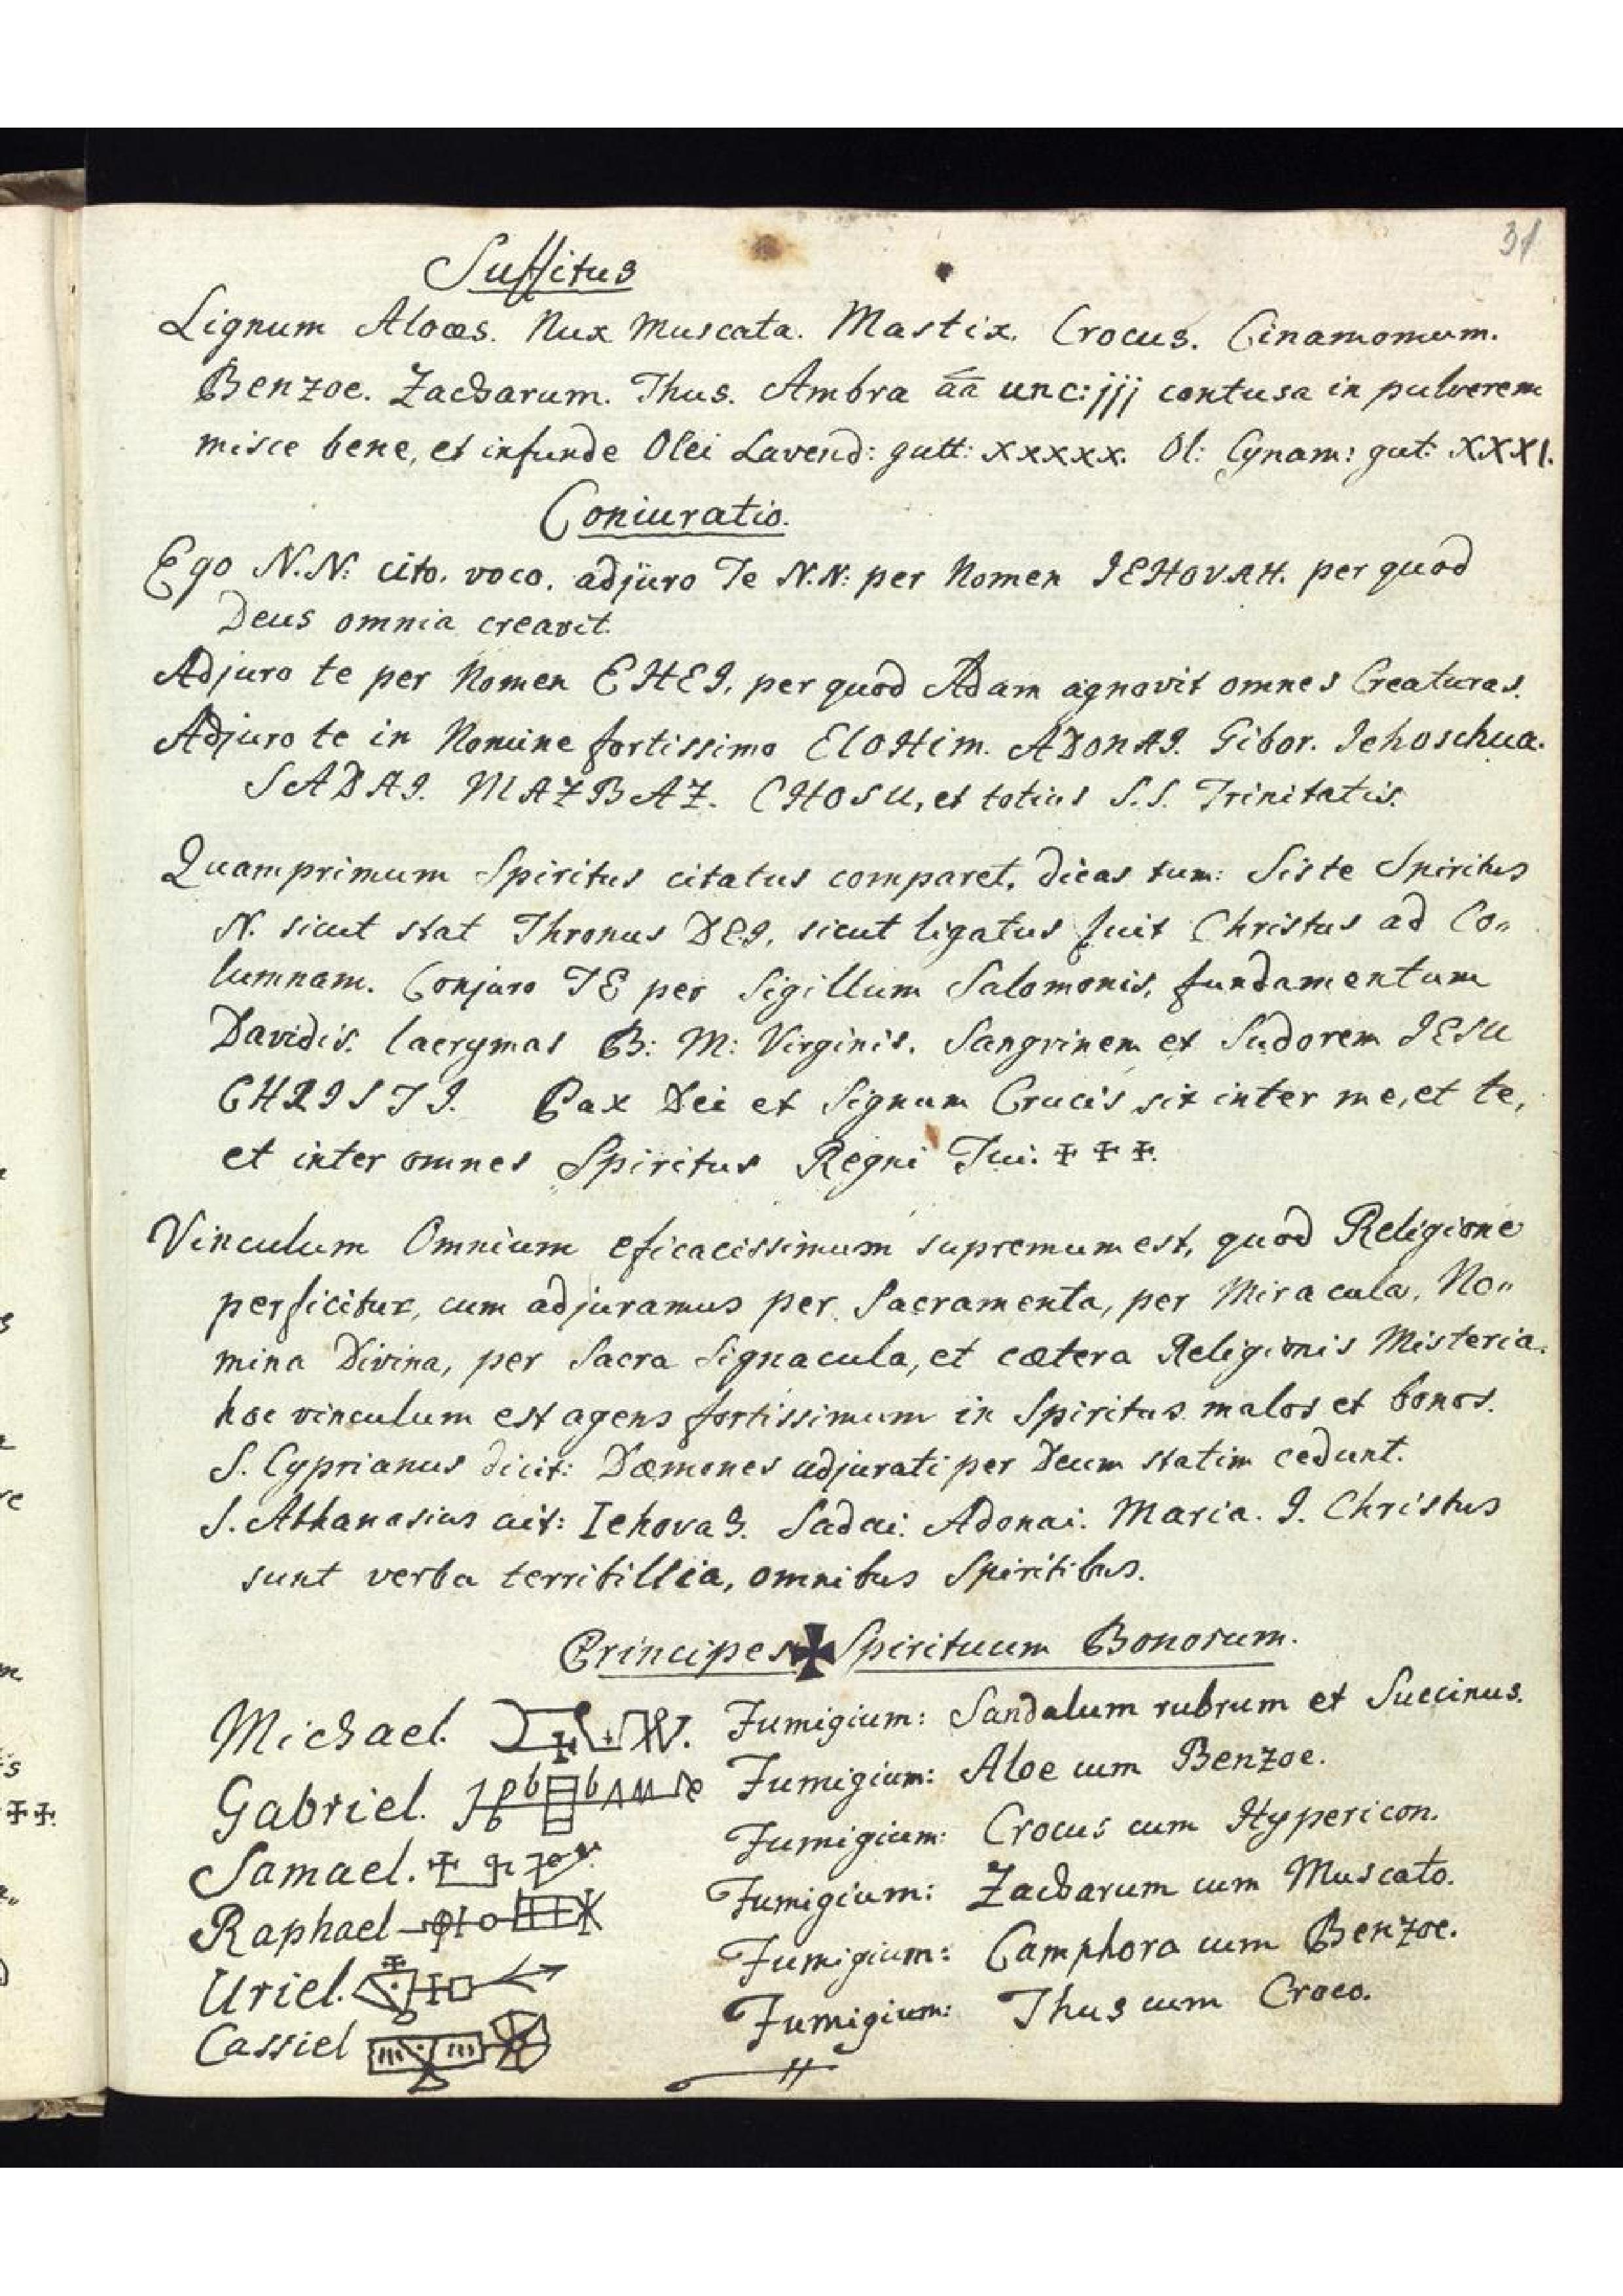 31
Suffitus
Lignum Aloes. Nux Muscata. Mastix. Crocus. Cinamomum.
Benzoe. Zacharum. Thus. Ambra āā unc: jjj contusa in pulverem
misce bene, et infunde Olei Lavend: gutt: xxxxx. Ol: Cynam: gut: XXXI.
Coniuratio.
Ego N.N: cito. voco. adjuro Te N.N: per Nomen IEHOVAH. per quod
Deus omnia creavit.
Adjuro te per Nomen EHEI, per quod Adam agnovit omnes Creaturas.
Adjuro te in Nomine fortissimo ElOHim. ADONAI. Gibor. Jehoschua.
SADAI. MAZBAZ. CHOSU, et totius S.S. Trinitatis.
Quamprimum Spiritus citatus comparet, dicas tum: Siste Spiritus
N. sicut stat Thronus DEI, sicut ligatus fuit Christus ad Co„
lumnam. Conjuro TE per Sigillum Salomonis, fundamentum
Davidis. lacrymas B: M: Virginis. Sangvinem et Sudorem IESU
CHRISTI. Pax Dei et Signum Crucis sit inter me, et te,
et inter omnes Spiritus Regni Tui. ‡ ‡ ‡.
Vinculum Omnium eficacissimum supremum est, quod Religione
perficitur, cum adjuramus per Sacramenta, per Miracula, No„
mina Divina, per Sacra Signacula, et cætera Religionis Misteria.
hoc vinculum est agens fortissimum in Spiritus malos et bonos.
S. Cyprianus dicit: Dæmones adjurati per Deum statim cedunt.
S. Athanasius ait: IehovaH. Sadai. Adonai. Maria. I. Christus
sunt verba terribillia, omnibus Spiritibus.
Principes ✠ Spirituum Bonorum.
Michael. Fumigium: Sandalum rubrum et Succinus.
Gabriel. Fumigium: Aloe cum Benzoe.
Samael. Fumigium: Crocus cum Hypericon.
Raphael Fumigium: Zacharum cum Muscato.
Uriel. Fumigium: Camphora cum Benzoe.
Cassiel Fumigium: Thus cum Croco.